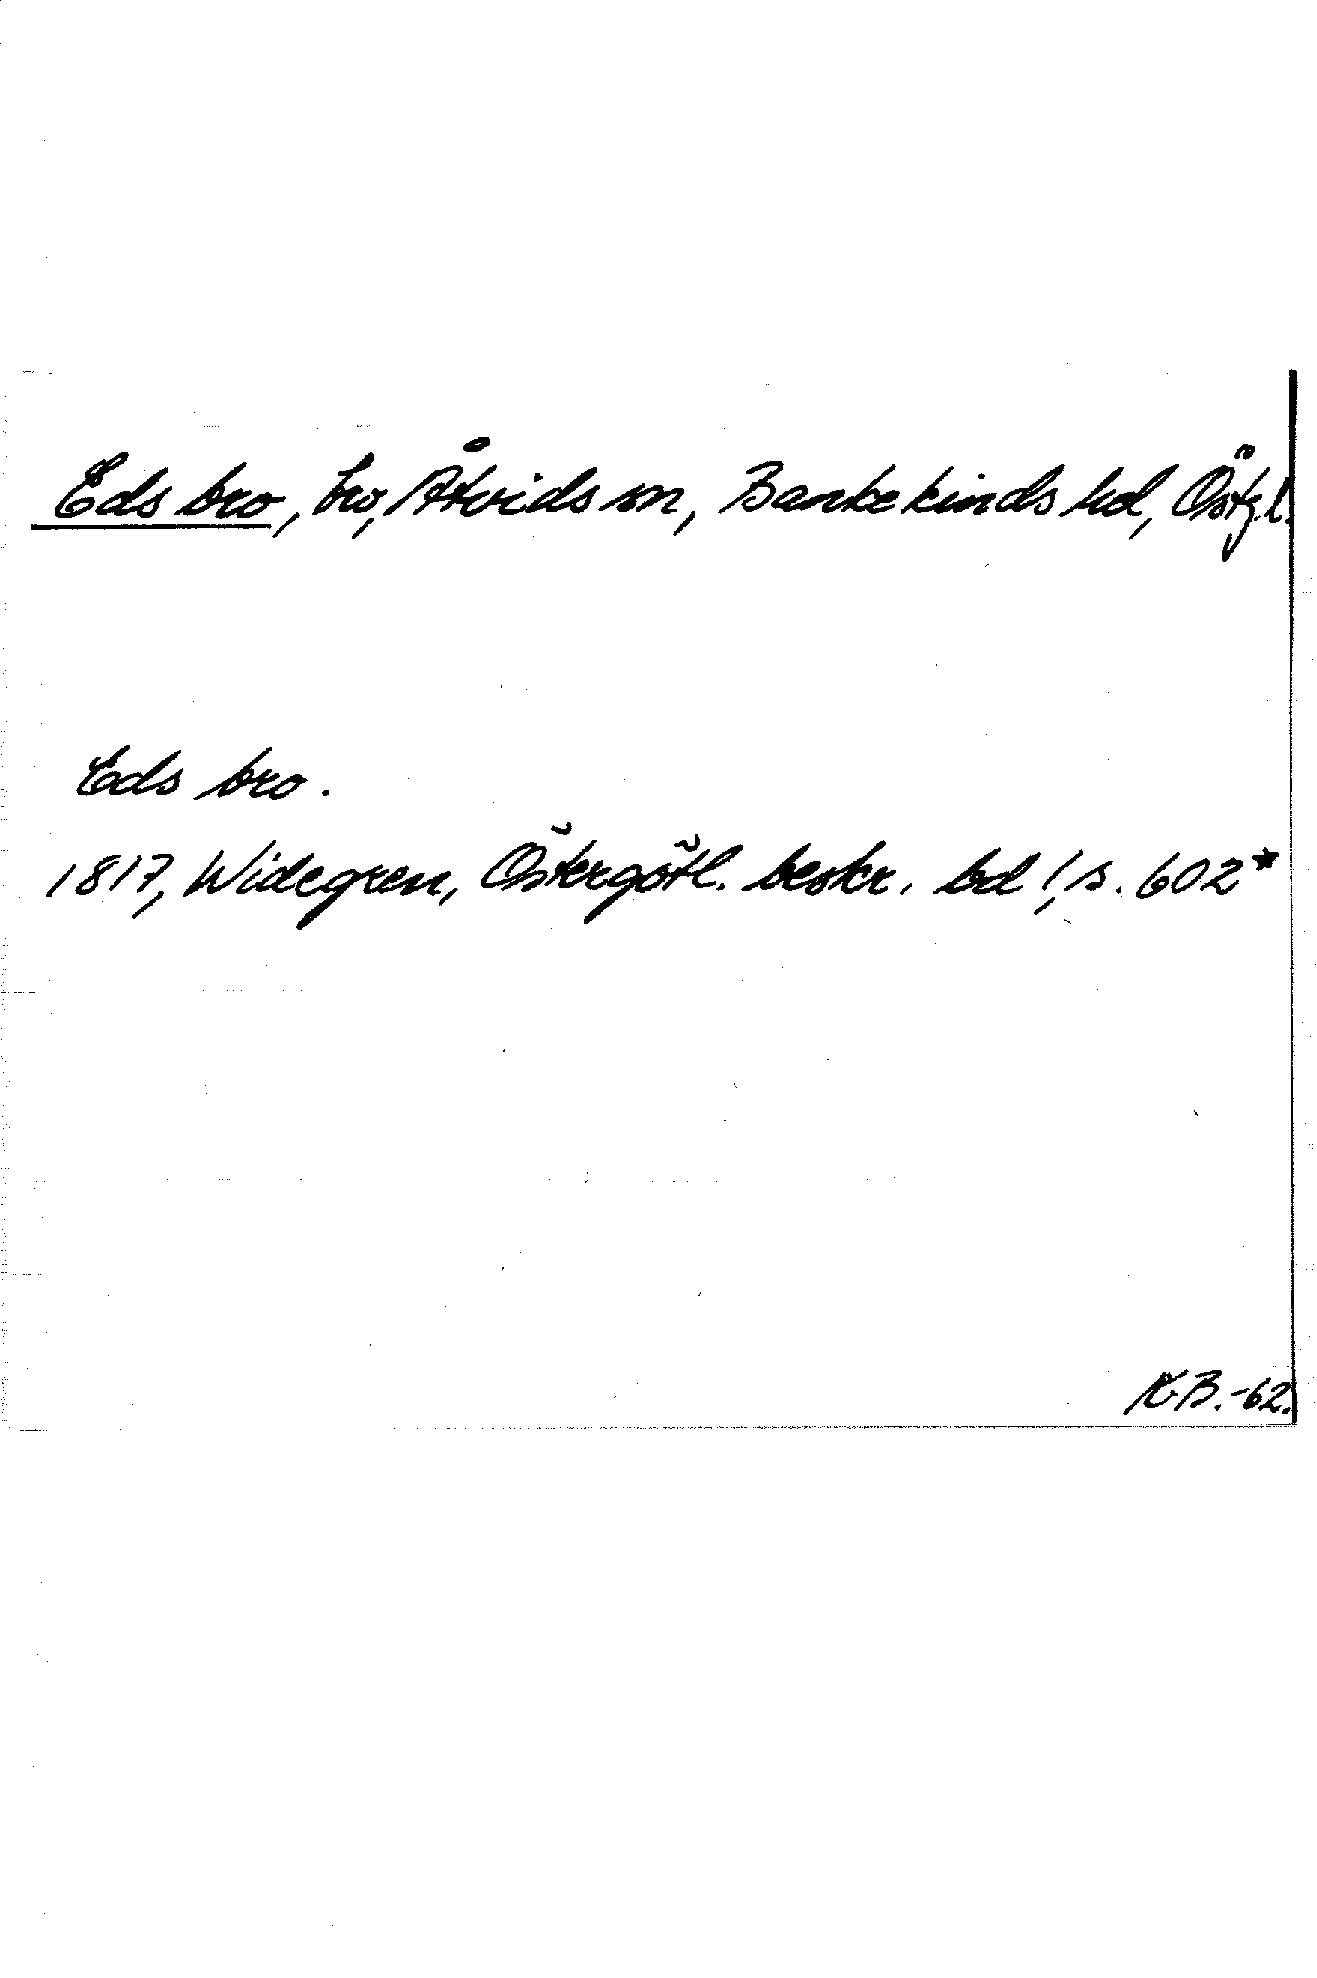 Eds bro, bro, Åtvids sn, Bankekinds hd, Östg.l.
Eds bro.
1817, Widegren, Östergötl. beskr. bd 1, s. 602*
K.B.-62.